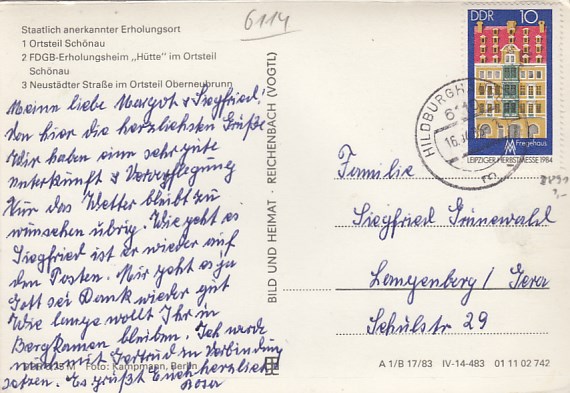 6114
Staatlich anerkannter Erholungsort
1 Ortsteil Schönau
2 FDGB-Erholungsheim „Hütte" im Ortsteil
Schönau
3 Neustädter Straße im Ortsteil Oberneubrunn
Meine liebe Margot & Siegfried!
Von hier die herzlichsten Grüße
Wir haben eine sehr gute
Unterkunft & Verpflegung
Nur das Wetter bleibt zu
wünschen übrig. Wie geht es
Siegfried ist er wieder auf
den Posten. Mir geht es ja
Gott sei Dank wieder gut
Wie lange wollt Ihr in
Bergkamen bleiben. Ich werde
mich mit Gertrud in Verbindung
setzen. Es grüßt Euch herzlich
Rosa
Foto: Kampmann, Berlin
BILD UND HEIMAT · REICHENBACH (VOGTL)
DDR 10
Fregehaus
LEIPZIGER HERBSTMESSE 1984
HILDBURGH
611
16.
Familie
Siegfried Grünewald
Langenberg / Gera
Schulstr 29
A 1/B 17/83 IV-14-483 01 11 02 742